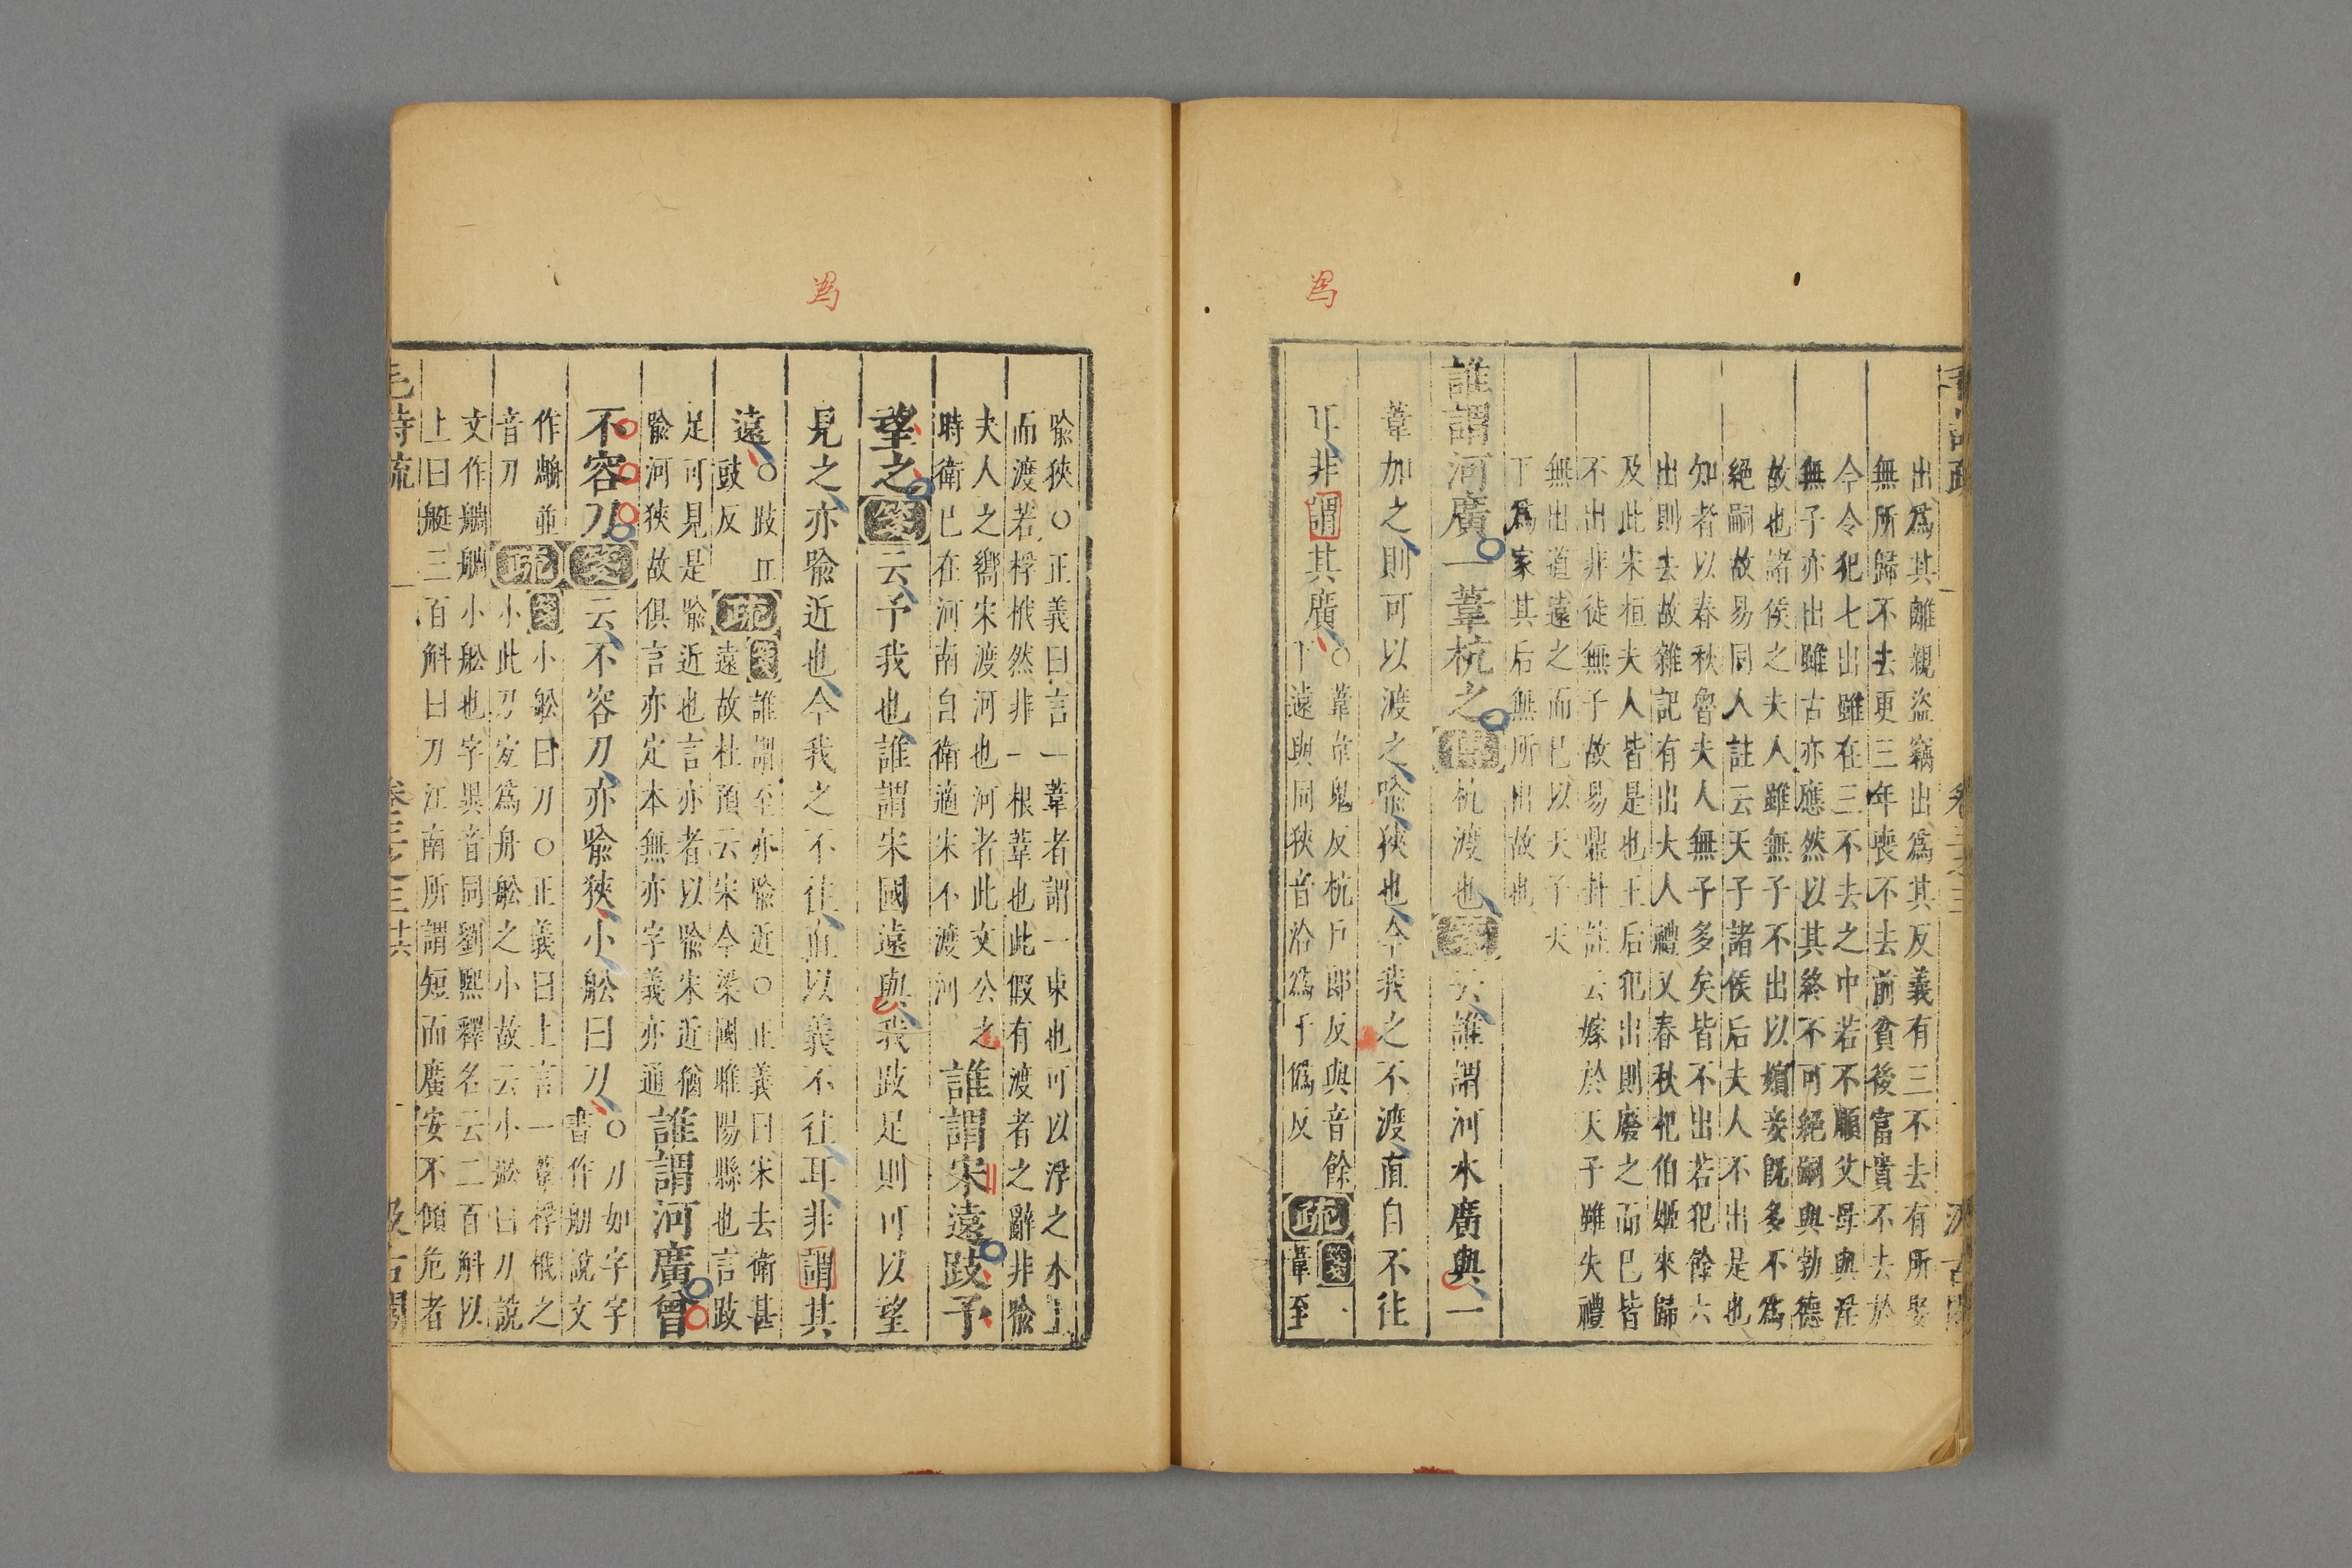 毛詩疏　卷三之三　汲古閣
出爲其離親盜竊出爲其反義有三不去有所娶
無所歸不去更三年喪不去前貧後富貴不去於
今令犯七出雖在三不去之中若不順父母與淫
無子亦出雖古亦應然以其終不可絕嗣與勃德
故也諸侯之夫人雖無子不出以嬪妾既多不爲
絕嗣故易同人註云天子諸侯后夫人不出是也
知者以春秋魯夫人無子多矣皆不出若犯餘六
出則去故雜記有出夫人禮又春秋杞伯姬來歸
及此宋桓夫人皆是也王后犯出則廢之而已皆
不出非徒無子故易鼎卦註云嫁於天子雖失禮
無出道遠之而已以天子天
下爲家其后無所出故也
誰謂河廣一葦杭之傳杭渡也箋云誰謂河水廣與一
葦加之則可以渡之喻狹也今我之不渡直自不往
為
耳非謂其廣
○葦韋鬼反杭戶郎反與音餘
下遠與同狹音洽爲于僞反
疏
箋一
葦至
喻狹○正義曰言一葦者謂一束也可以浮之水上
而渡若桴栰然非一根葦也此假有渡者之辭非喻
夫人之嚮宋渡河也河者此文公之
時衛已在河南自衛適宋不渡河
誰謂宋遠跂予
望之箋云予我也誰謂宋國遠與我跂足則可以望
為
見之亦喻近也今我之不往直以義不往耳非謂其
遠
○跂丘
豉反
疏
箋誰謂至亦喻近○正義曰宋去衛甚
遠故杜預云宋今梁國睢陽縣也言跂
足可見是喻近也言亦者以喻宋近猶
喻河狹故俱言亦定本無亦字義亦通
誰謂河廣曾
不容刀箋云不容刀亦喻狹小船曰刀
○刀如字字
書作舠說文
作𦩍並
音刀
疏
箋小船曰刀○正義曰上言一葦桴栰之
小此刀宜爲舟船之小故云小船曰刀說
文作𦩍𦩍小船也字異音同劉熙釋名云二百斛以
上曰艇三百斛曰刀江南所謂短而廣安不傾危者
毛詩疏　卷三之三　十六　汲古閣